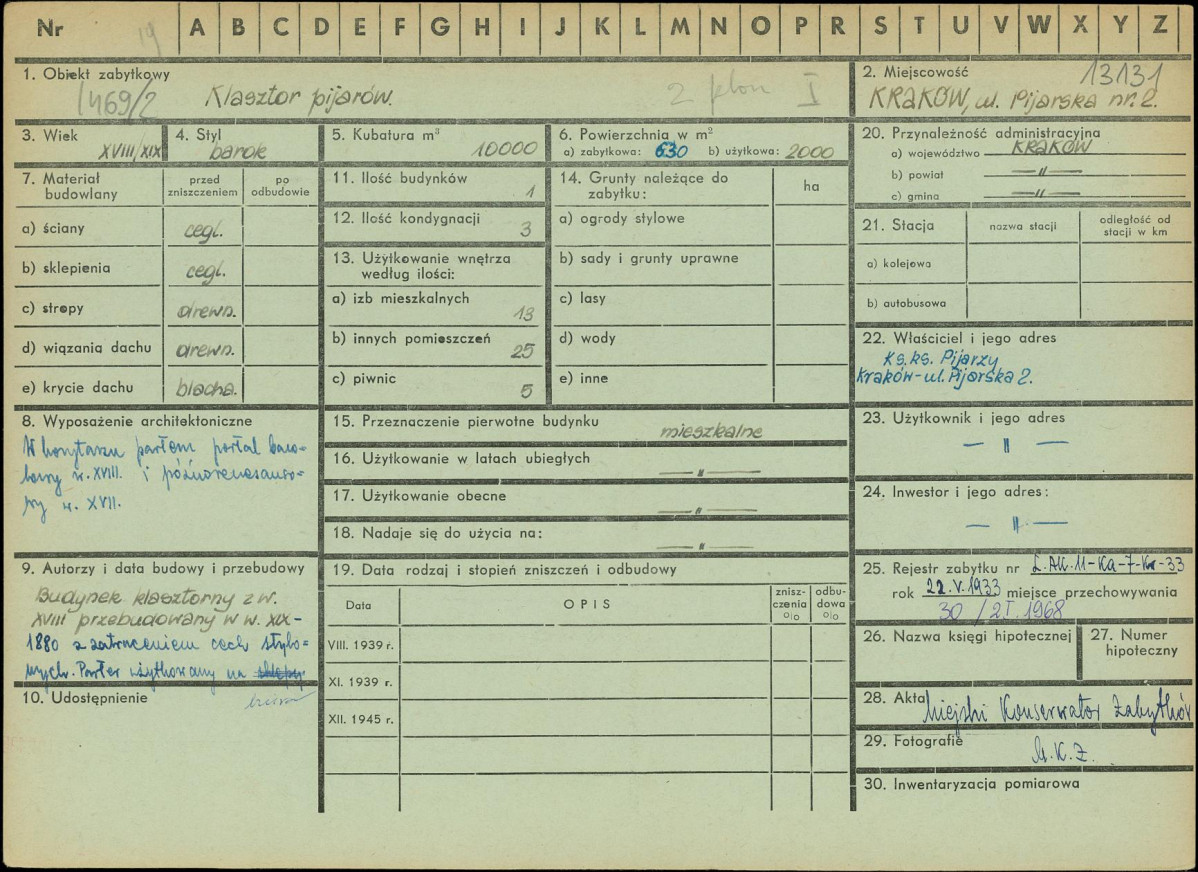 Nr 19 A B C D E F G H I J K L M N O P R S T U V W X Y Z
1. Obiekt zabytkowy
1469/2 Klasztor pijarów. 2 I
2. Miejscowość 13131
KRAKÓW, ul. Pijarska nr. 2.
3. Wiek
XVIII/XIX
4. Styl
barok
5. Kubatura m³
10000
6. Powierzchnia w m²
a) zabytkowa: 630 b) użytkowa: 2000
20. Przynależność administracyjna
a) województwo KRAKÓW
b) powiat —〃—
c) gmina —〃—
7. Materiał budowlany
przed zniszczeniem
po odbudowie
a) ściany cegl.
b) sklepienia cegl.
c) stropy drewn.
d) wiązania dachu drewn.
e) krycie dachu blacha.
11. Ilość budynków 1
12. Ilość kondygnacji 3
13. Użytkowanie wnętrza
według ilości:
a) izb mieszkalnych 13
b) innych pomieszczeń 25
c) piwnic 5
14. Grunty należące do
zabytku:
ha
a) ogrody stylowe
b) sady i grunty uprawne
c) lasy
d) wody
e) inne
21. Stacja
nazwa stacji
odległość od
stacji w km
a) kolejowa
b) autobusowa
22. Właściciel i jego adres
Ks. ks. Pijarzy
Kraków - ul. Pijarska 2.
23. Użytkownik i jego adres
— 〃 —
24. Inwestor i jego adres:
— 〃 —
8. Wyposażenie architektoniczne
W korytarzu parteru portal baro-
kowy w. XVIII. i późnorenesanso-
wy w. XVII.
15. Przeznaczenie pierwotne budynku mieszkalne
16. Użytkowanie w latach ubiegłych —〃—
17. Użytkowanie obecne —〃—
18. Nadaje się do użycia na: —〃—
9. Autorzy i data budowy i przebudowy
Budynek klasztorny z w.
XVIII przebudowany w w. XIX-
1880 z zatraceniem cech stylo-
wych. Parter użytkowany na sklepy
biura
10. Udostępnienie
19. Data rodzaj i stopień zniszczeń i odbudowy
Data
OPIS
znisz-
czenia
%
odbu-
dowa
%
VIII. 1939 r.
XI. 1939 r.
XII. 1945 r.
25. Rejestr zabytku nr L.AK.11-Ka-7-Kr-33
rok 22.V.1933 miejsce przechowywania
30 / 2I 1968
26. Nazwa księgi hipotecznej
27. Numer
hipoteczny
28. Akta Miejski Konserwator Zabytków
29. Fotografie M.K.Z.
30. Inwentaryzacja pomiarowa